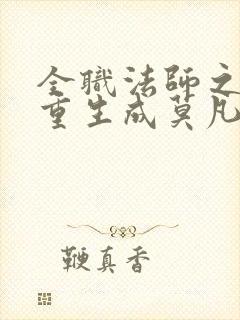 全職法師之
重生成莫凡
鞭真香